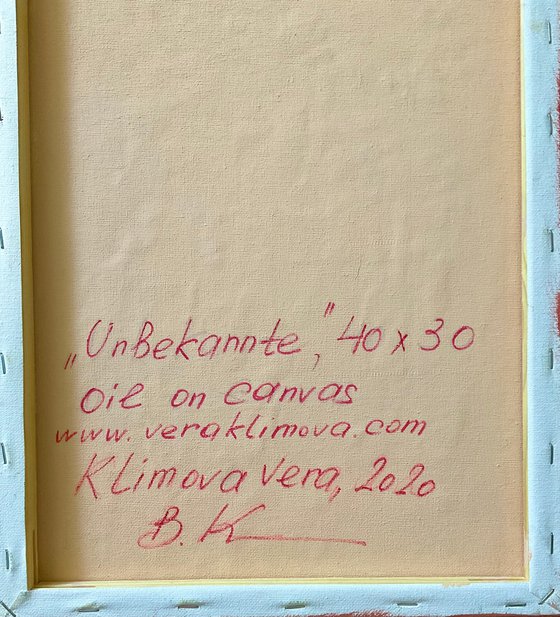 „UnBekannte," 40 x 30
oil on canvas
www.veraklimova.com
Klimova Vera, 2020
B. K